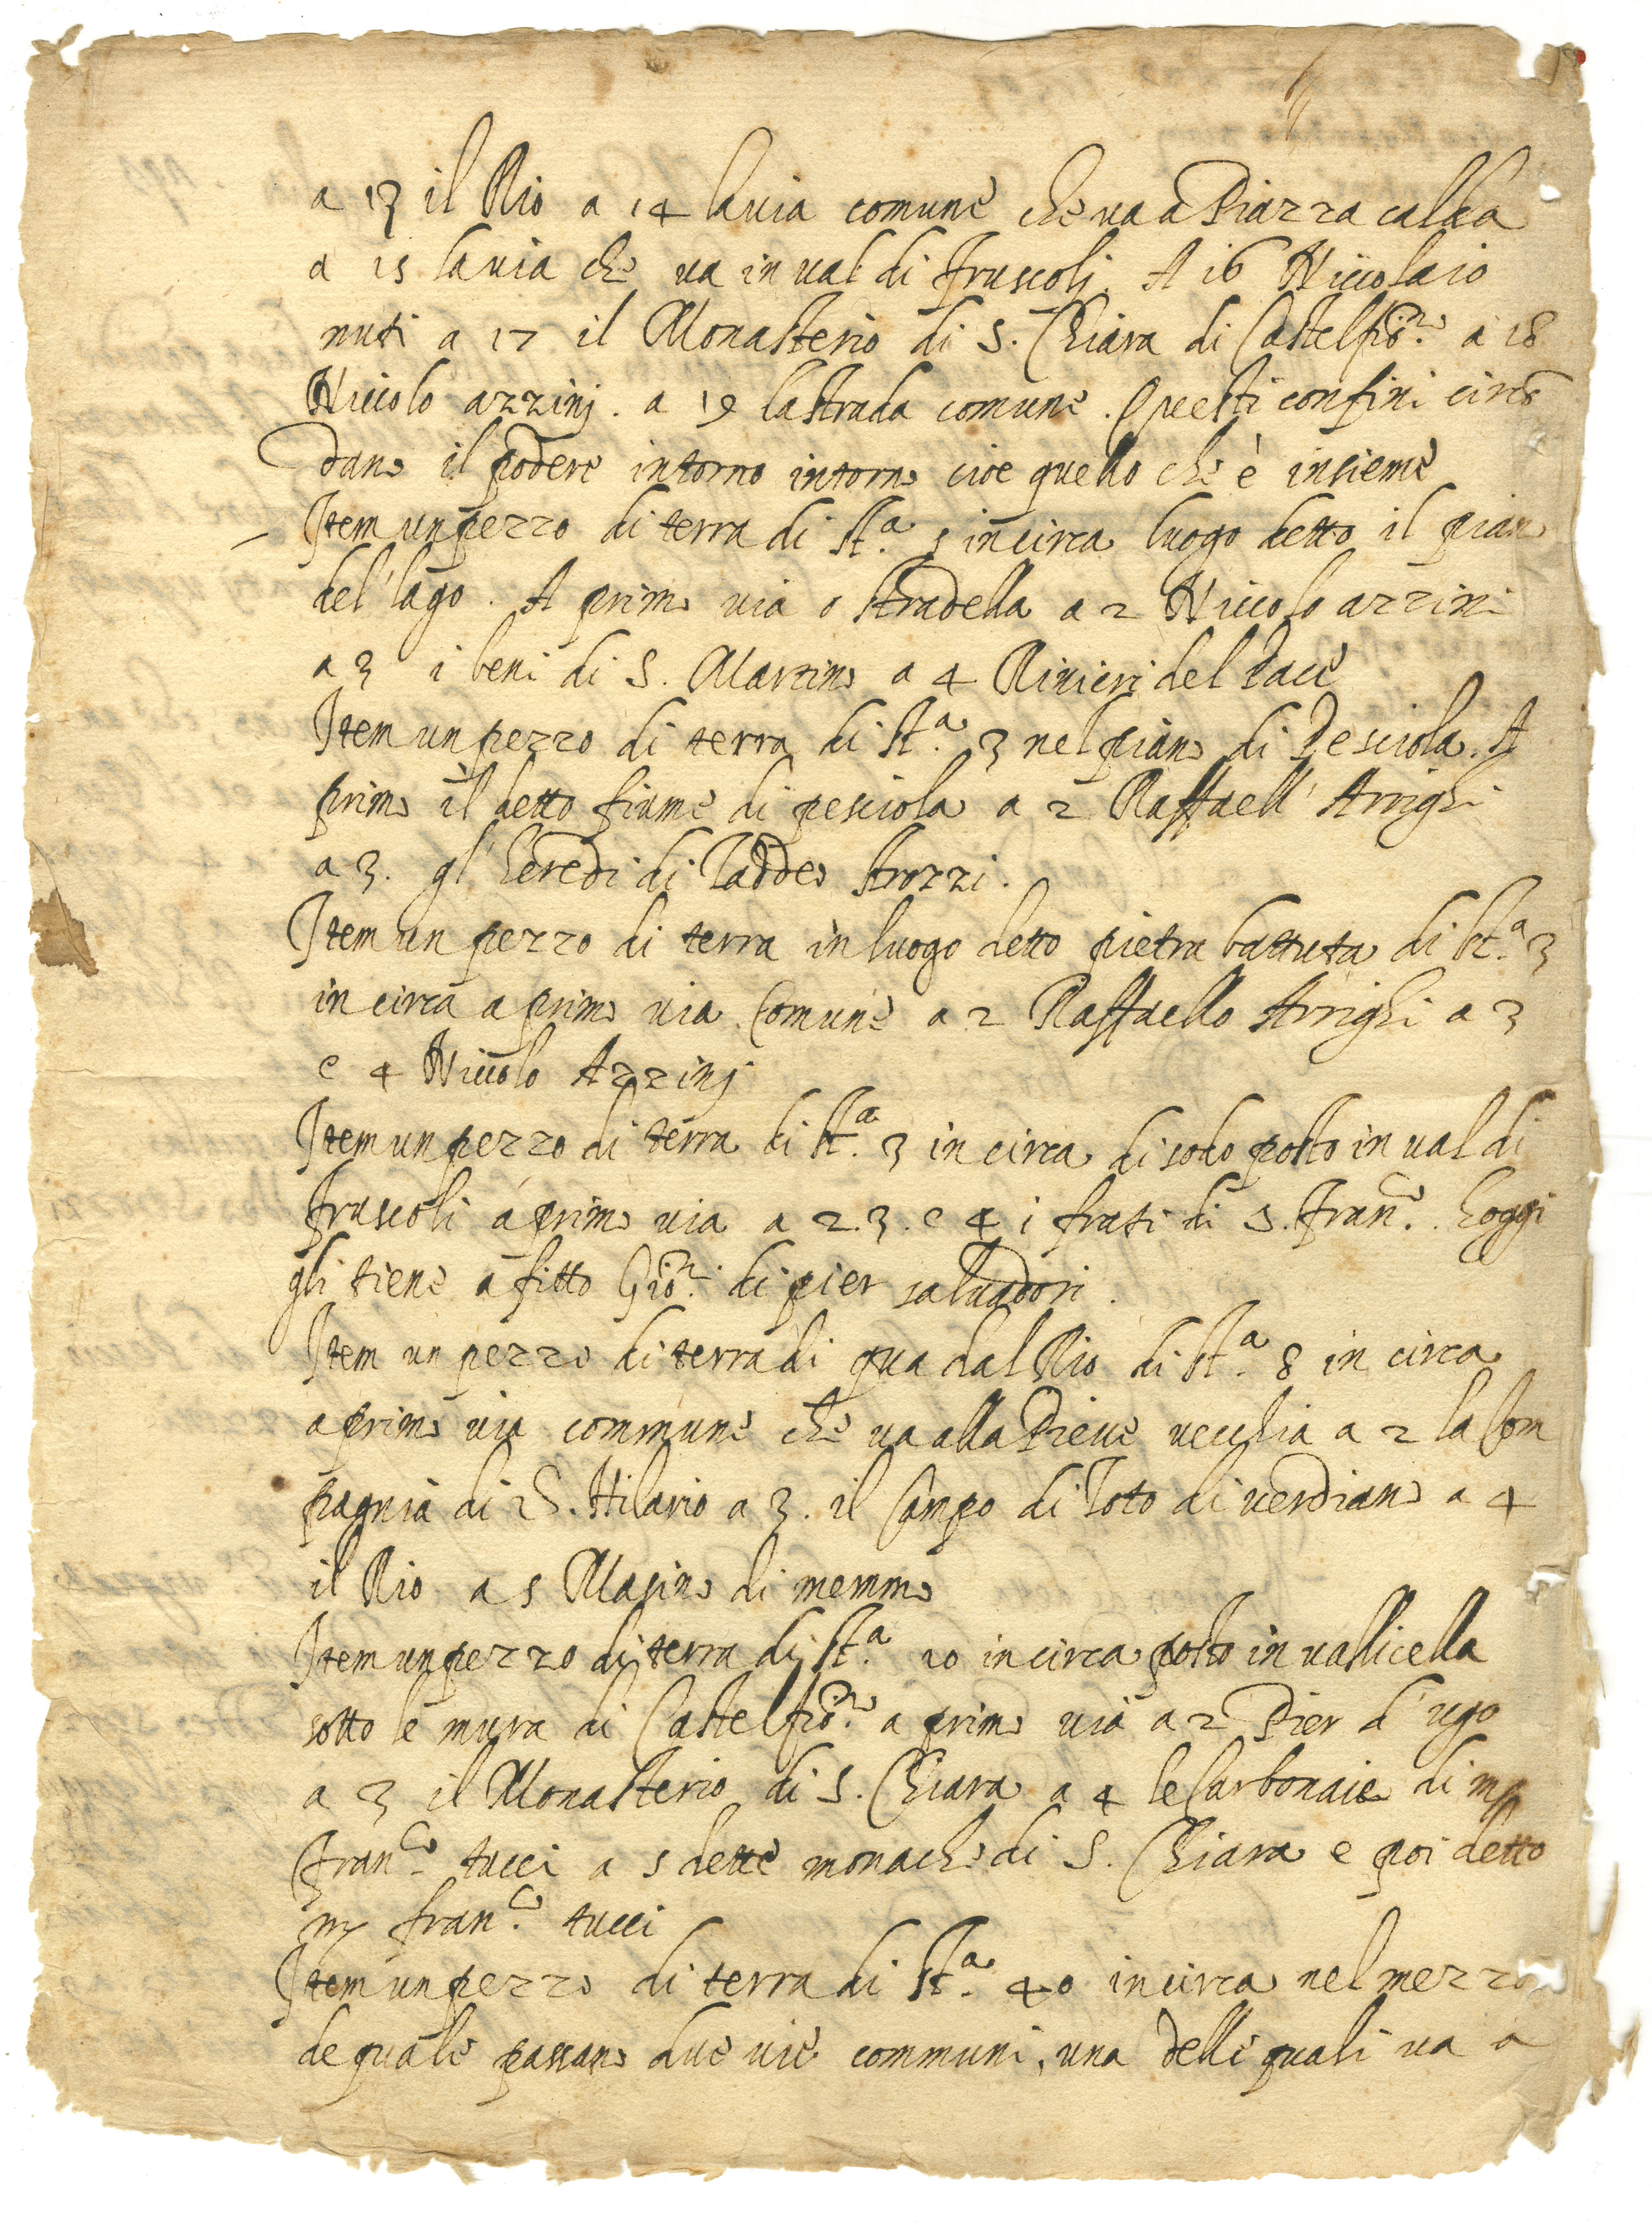 a 13 il Rio a 14 la uia comune che ua a Piazza calda
a 15 la uia che ua in val di fruscoli. A 16 Niccolaio
nuti a 17 il Monasterio di S. Chiara di Castelfio.ⁿᵒ a 18
Niccolo azzinj. a 19 la strada comune. Questi confini circō
dano il podere intorno intorno cioe quello che è insieme
Item un pezzo di terra di st.ᵃ 5 in circa luogo detto il pian
del' lago. A primo uia o stradella a 2 Niccolo azzini
a 3 i beni di S. Martino a 4 Rinieri del Pace
Item un pezzo di terra di st.ᵃ 3 nel piano di Pesciola. A
primo il detto fiume di pesciola a 2 Raffaell' Arrighi
a 3. gl' heredi di Taddeo strozzi.
Item un pezzo di terra in luogo detto pietra battuta di st.ᵃ 3
in circa a primo uia Comune a 2 Raffaello Arrighi a 3
e 4 Niccolo Azzinj
Item un pezzo di terra di st.ᵃ 3 in circa di sodo posto in ual di
fruscoli a primo uia a 2. 3. e 4 i frati di S. fran.ᶜᵒ. hoggi
gli tiene a fitto Gio.ⁿⁱ di pier saluadori.
Item un pezzo di terra di qua dal Rio di st.ᵃ 8 in circa
a primo uia commune che ua alla Pieue uecchia a 2 la Com
pagnia di S. Hilario a 3. il Campo di Toto di uerdiano a 4
il Rio a 5 Masino di memmo
Item un pezzo di terra di st.ᵃ 10 in circa posto in uallicella
sotto le mura di Castelfio.ⁿᵒ a primo uia a 2 Pier d' ugo
a 3 il Monasterio di S. Chiara a 4 le Carbonaie di
fran.ᶜᵒ tucci a 5 dette monache di S. Chiara e poi detto
fran.ᶜᵒ tucci
Item un pezzo di terra di st.ᵃ 40 in circa nel mezzo
de quale passano due uie communi, una delle quali ua a